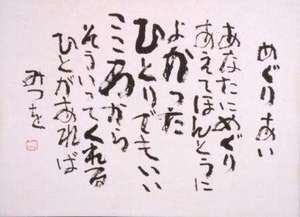 めぐりあい
あなたにめぐり
あえてほんとうに
よかった
ひとりでもいい
こころから
そういってくれる
ひとがあれば
みつを